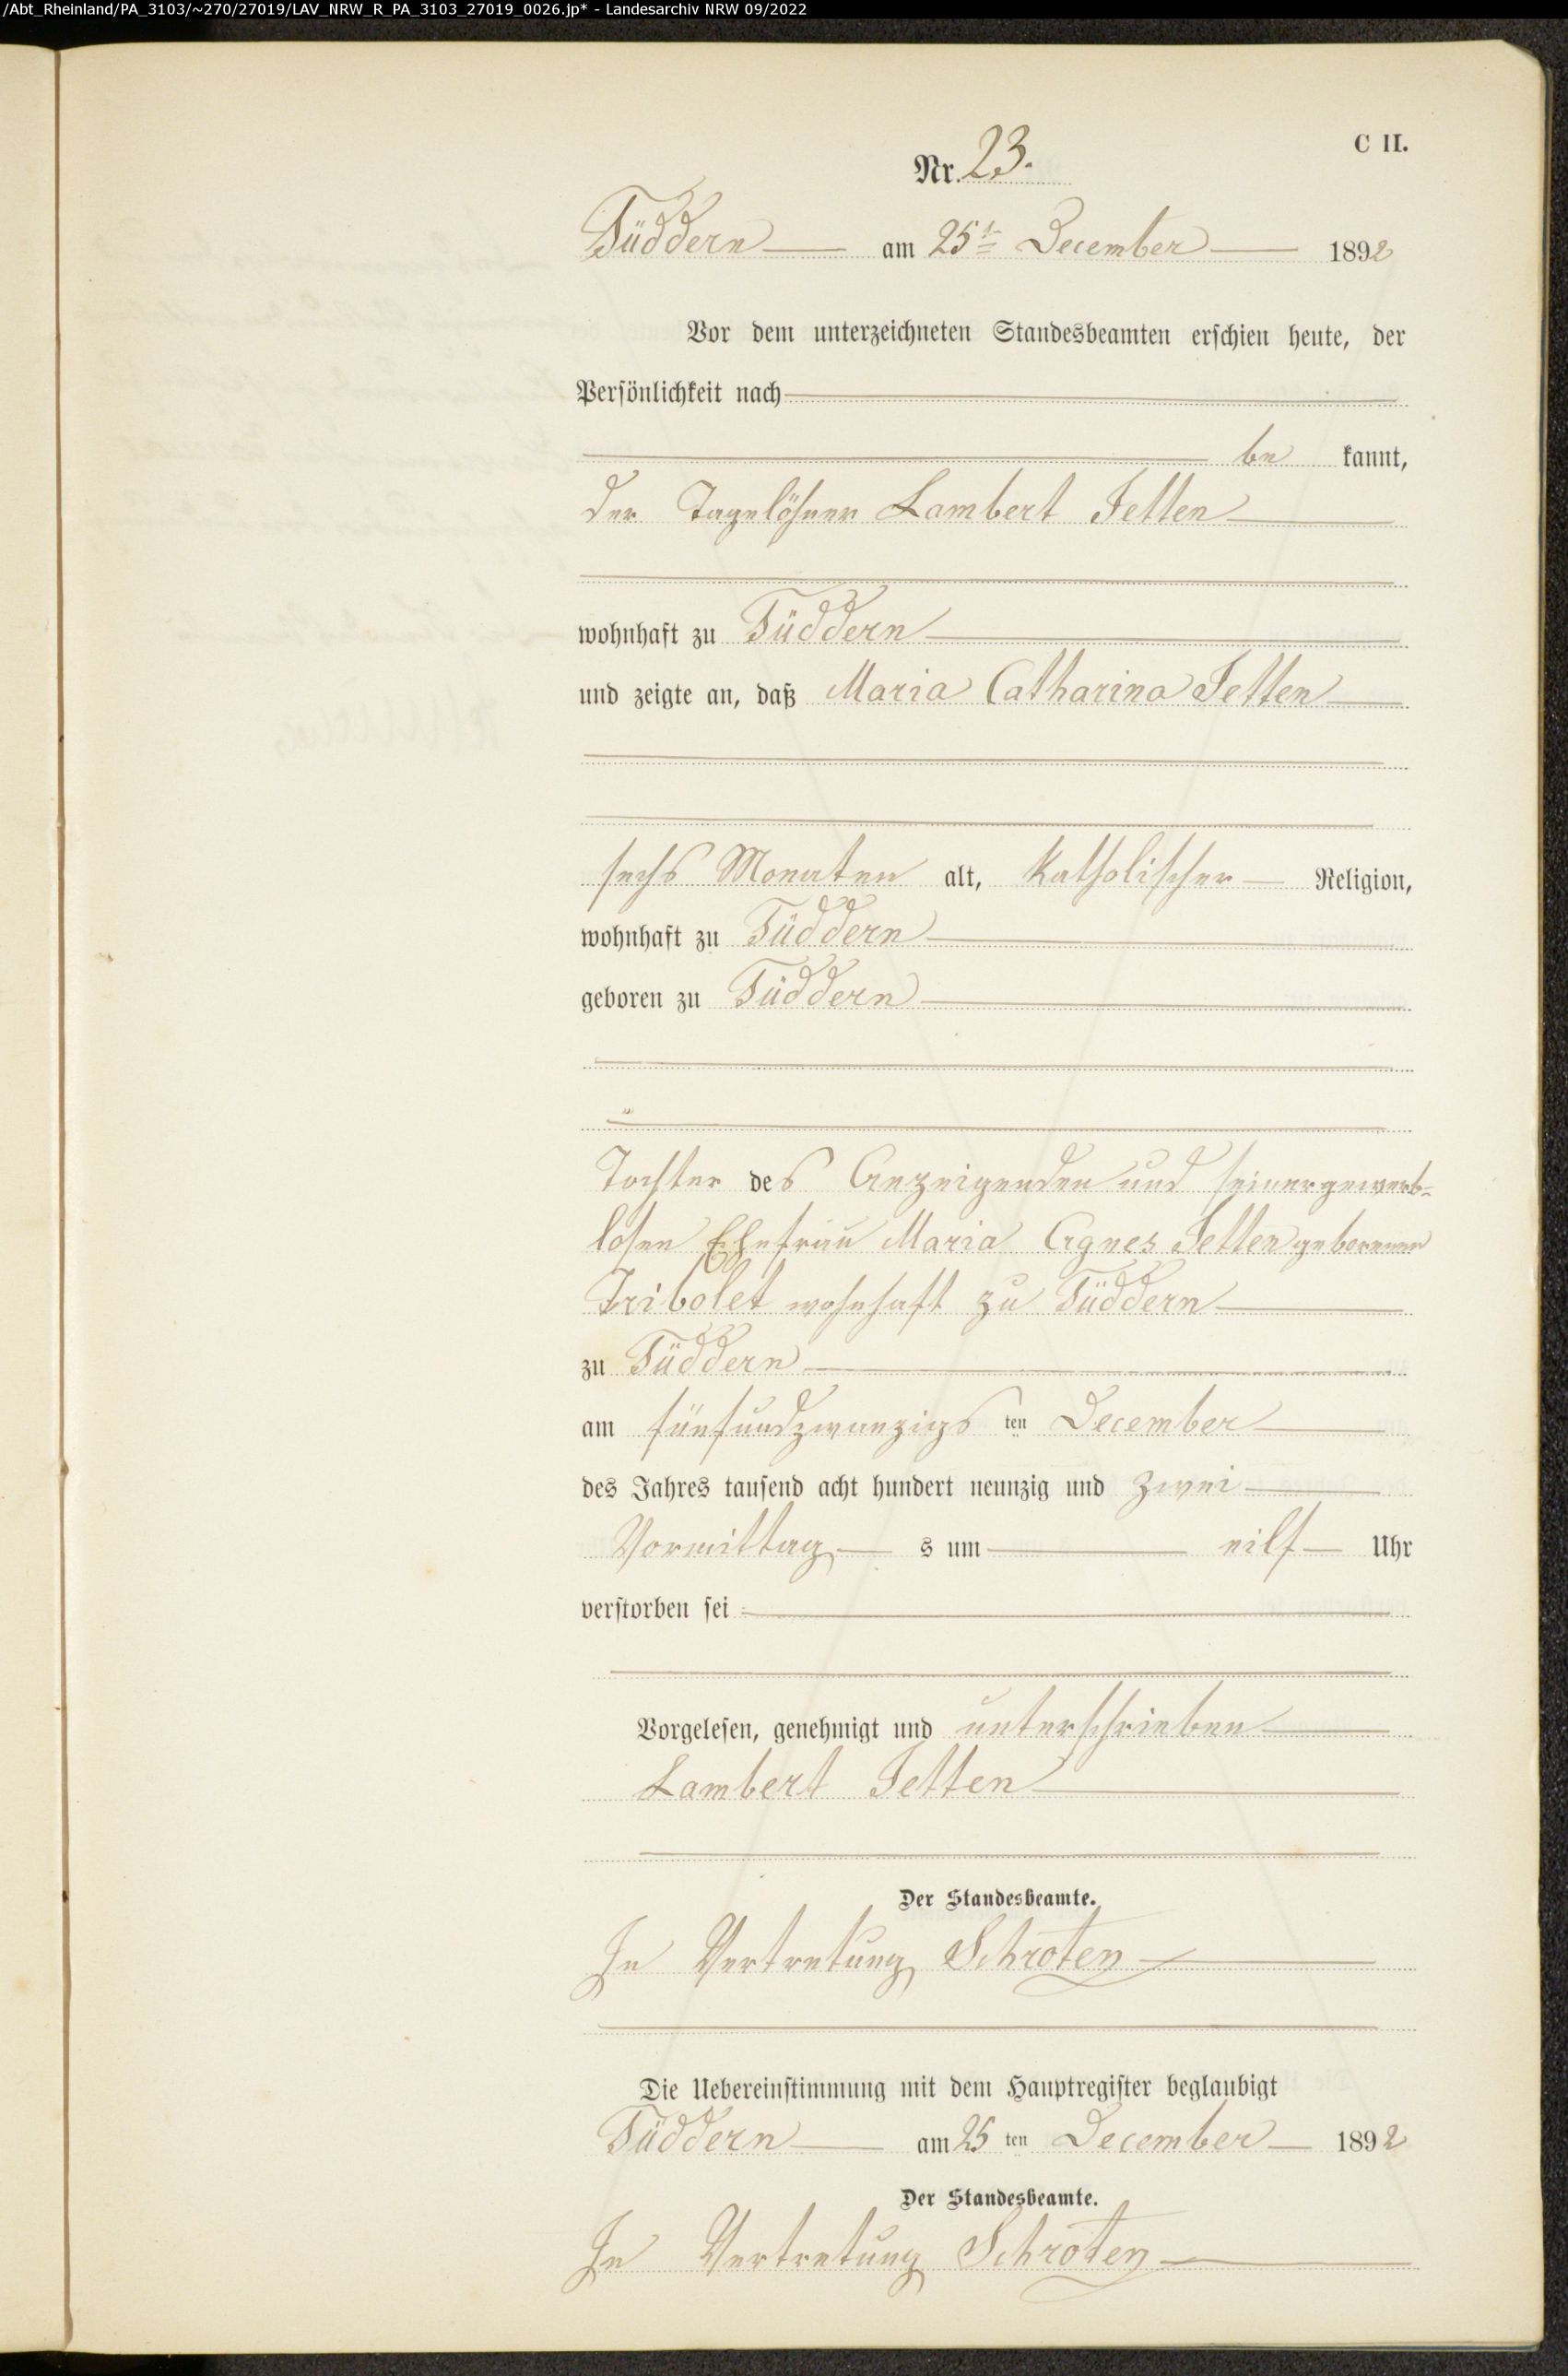 /Abt_Rheinland/PA_3103/~270/27019/LAV_NRW_R_PA_3103_27019_0026.jp* - Landesarchiv NRW 09/2022
C II.
Nr. 23.
Tüddern am 25ten December 1892
Vor dem unterzeichneten Standesbeamten erschien heute, der
Persönlichkeit nach
be kannt,
der Tagelöhner Lambert Jetten
wohnhaft zu Tüddern
und zeigte an, daß Maria Catharina Jetten
sechs Monaten alt, katholischer Religion,
wohnhaft zu Tüddern
geboren zu Tüddern
Tochter des Anzeigenden und seiner gewerb-
losen Ehefrau Maria Agnes Jetten geborenen
Tribolet wohnhaft zu Tüddern
zu Tüddern
am fünfundzwanzigs ten December
des Jahres tausend acht hundert neunzig und zwei
Vormittag s um eilf Uhr
verstorben sei
Vorgelesen, genehmigt und unterschrieben
Lambert Jetten
Der Standesbeamte.
In Vertretung Schroten
Die Uebereinstimmung mit dem Hauptregister beglaubigt
Tüddern am 25 ten December 1892
Der Standesbeamte.
In Vertretung Schroten